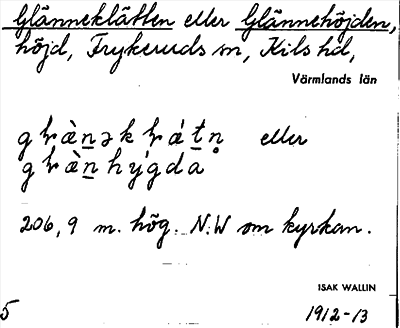 Glänneklätten eller Glännehöjden,
höjd, Frykeruds sn, Kils hd,
Värmlands län
eller
206,9 m. hög. N.W om kyrkan.
ISAK WALLIN
5
1912-13